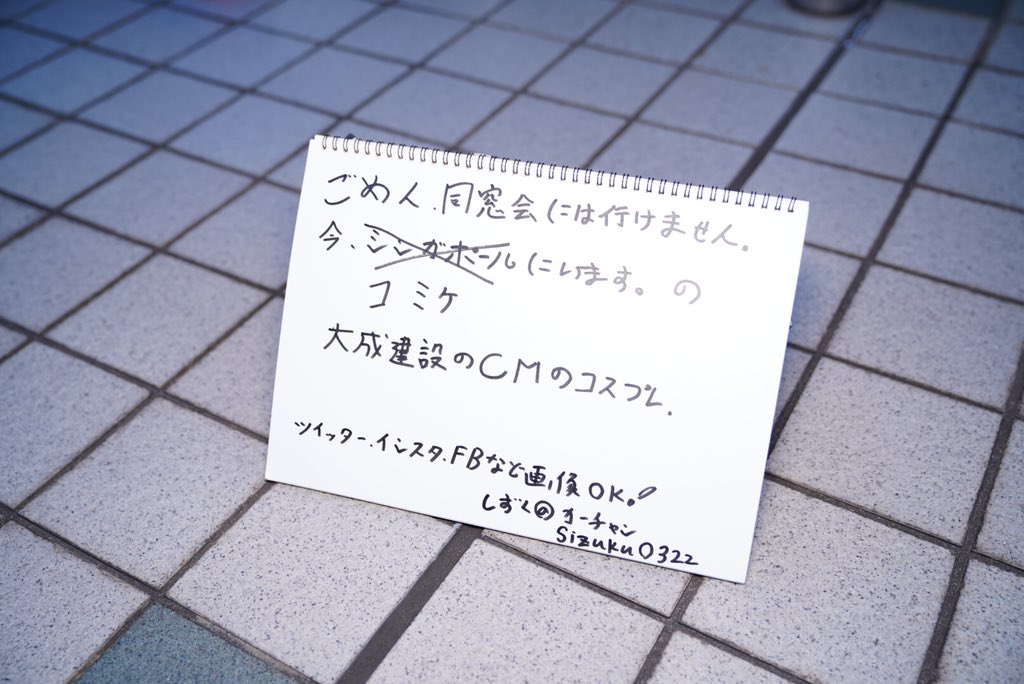 ごめん.同窓会には行けません。
今、シンガポールにいます。の
コミケ
大成建設のCMのコスプレ.
ツイッター.インスタ.FBなど画像OK!
しずくの カーチャン
sizuku0322